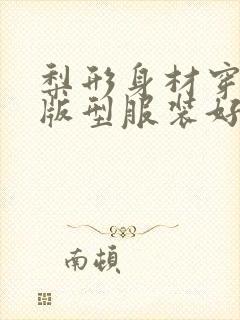 梨形身材穿
版型服装好
南顿